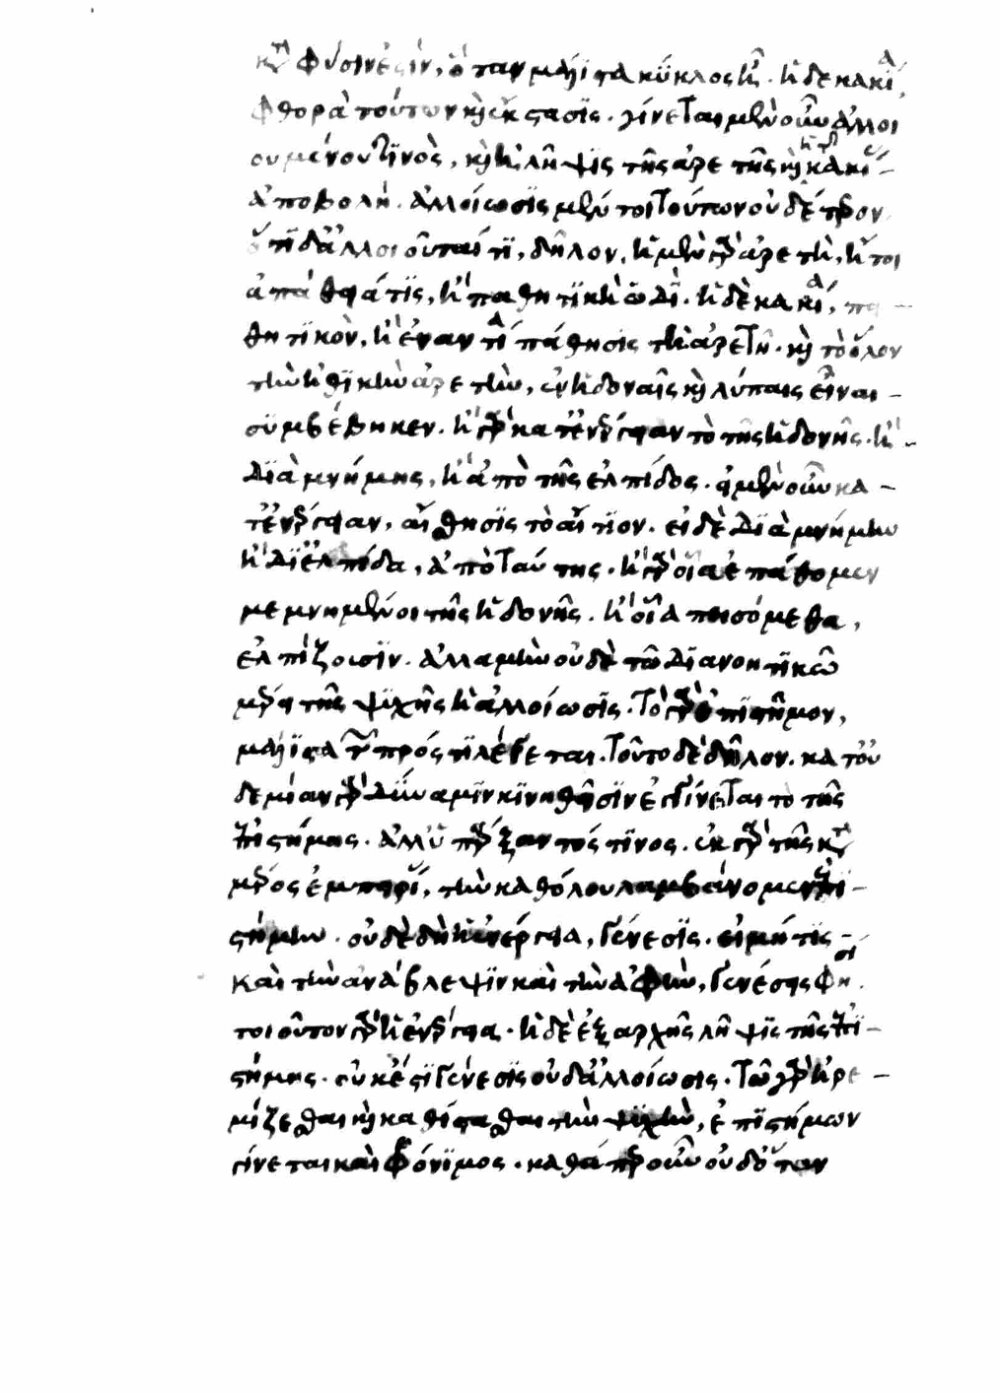 κτ φύσιν ἐστίν, ὅταν μάλιστα κύκλος ᾖ. ἡ δὲ κακί
φθορὰ τούτων κ̀ ἔκστασις. γίνεται μὲν οὖν ἀλλοι
ουμένου τινὸς, κ̀ ἡ λῆψις τῆς ἀρετῆς κ̀ ἡ τ κακί-
ἀποβολή. ἀλλοίωσις μέν τοι τούτων οὐδέτερον
ὅτι δ' ἀλλοιοῦταί τι, δῆλον. ἡ μὲν γὰρ ἀρετὴ, ἤτοι
ἀπάθειά τις, ἢ παθητικὴ ὡδί. ἡ δὲ κακία, πα-
θητικὸν, ἢ ἐναντία πάθησις τῆ ἀρετῆ. κ̀ τὸ ὅλον
τὴν ἠθικὴν ἀρετὴν, ἐν ἡδοναῖς κ̀ λύπαις εἶναι -
συμβέβηκεν. ἢ γὰρ κατ' ἐνέργειαν τὸ τῆς ἡδονῆς. ἢ -
διὰ μνήμης, ἢ ἀπὸ τῆς ἐλπίδος. εἰ μὲν οὖν κα -
τ' ἐνέργειαν, αἴσθησις τὸ αἴτιον. εἰ δὲ διὰ μνήμην
ἢ δι' ἐλπίδα, ἀπὸ ταύτης. ἢ γὰρ οἷα ἐπάθομεν
μεμνημένοι τῆς ἡδονῆς. ἢ οἷα πεισόμεθα,
ἐλπίζουσιν. ἀλλὰ μὴν οὐδὲ τῶ διανοητικῶ
μέρει τῆς ψυχῆς ἡ ἀλλοίωσις. τὸ γὰρ ἐπιστῆμον,
μάλιστα τ πρός τι λέγεται. τοῦτο δὲ δῆλον. κατ' οὐ
δεμίαν γὰρ δύναμιν κινηθεῖσιν ἐγγίνεται τὸ τῆς
ἐπιστήμης. ἀλλ' ὑπάρξαντός τινος. ἐκ γὰρ τῆς κτ
μέρος ἐμπειρί, τὴν καθόλου λαμβάνομεν ἐπι-
στήμην. οὐδὲ δὴ ἡ ἐνέργεια, γένεσις. εἰ μή τις -
καὶ τὴν ἀνάβλεψιν καὶ τὴν ἁφὴν, γενέσεις φησί
τοιοῦτον γὰρ ἡ ἐνέργεια. ἡ δὲ ἐξ ἀρχῆς λῆψις τῆς ἐπι-
στήμης. οὐκ ἔστι γένεσις οὐδ' ἀλλοίωσις. τῶ γὰρ ἠρε -
μίζεσθαι κ̀ καθίστασθαι τὴν ψυχὴν, ἐπιστήμων
γίνεται καὶ φρόνιμος. καθάπερ οὖν οὐδ' ὅταν